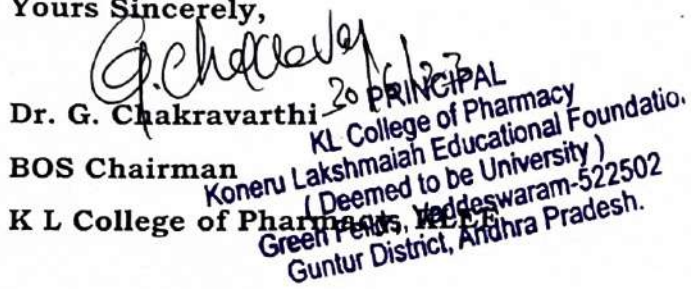 Yours Sincerely,
G. Chakravarthi
30/6/23
Dr. G. Chakravarthi
BOS Chairman
K L College of Pharmacy, KLEF
PRINCIPAL
KL College of Pharmacy
Koneru Lakshmaiah Educational Foundatio.
( Deemed to be University )
Green Fields, Vaddeswaram-522502
Guntur District, Andhra Pradesh.